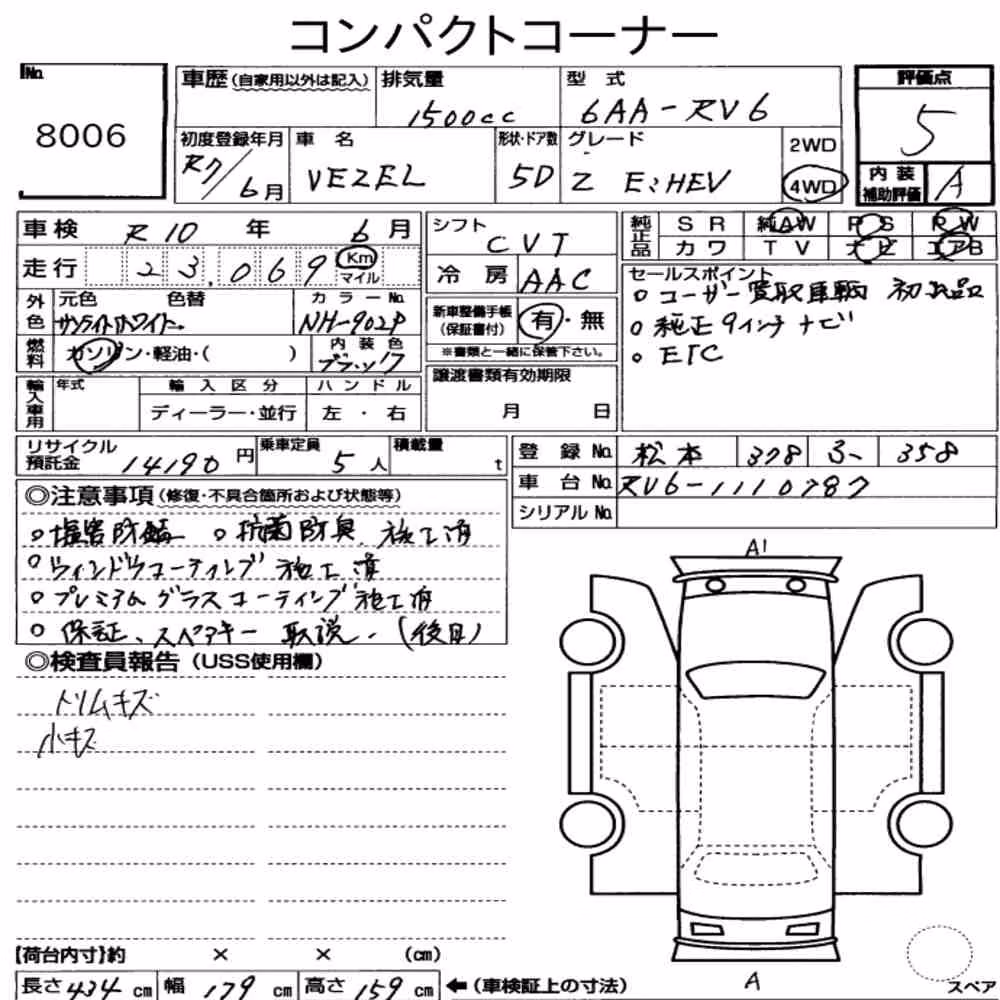 コンパクトコーナー
No.
8006
車歴(自家用以外は記入)
排気量
1500cc
型式
6AA-RV6
評価点
5
初度登録年月
R7/6月
車名
VEZEL
形状・ドア数
5D
グレード
Z E:HEV
2WD
4WD
内装
補助評価
A
車検 R10 年 6 月
走行 23,069 Km
マイル
シフト
CVT
冷房 AAC
純正品
SR 純AW PS PW
カワ TV ナビ エアB
外色
元色 色替
サンライトホワイトP
カラーNo.
NH-902P
新車整備手帳
(保証書付)
有・無
※書類と一緒に保管下さい。
セールスポイント
○ユーザー買取車輌 初出品
○純正9インチナビ
○ETC
燃料
ガソリン・軽油・( )
内装色
ブラック
輸入車用
年式
輸入区分
ディーラー・並行
ハンドル
左・右
譲渡書類有効期限
月 日
リサイクル
預託金 14190円
乗車定員
5人
積載量
t
登録No. 松本 378 ふ 358
車台No. RV6-1110787
シリアルNo.
◎注意事項(修復・不具合箇所および状態等)
○塩害防錆 ○抗菌防臭 施工済
○ウィンドウコーティング施工済
○プレミアムグラスコーティング施工済
○保証、スペアキー 取説、(後日)
◎検査員報告(USS使用欄)
トリムキズ
小キズ
A1
A
スペア
【荷台内寸】約 × × (cm)
長さ434cm 幅179cm 高さ159cm ←(車検証上の寸法)